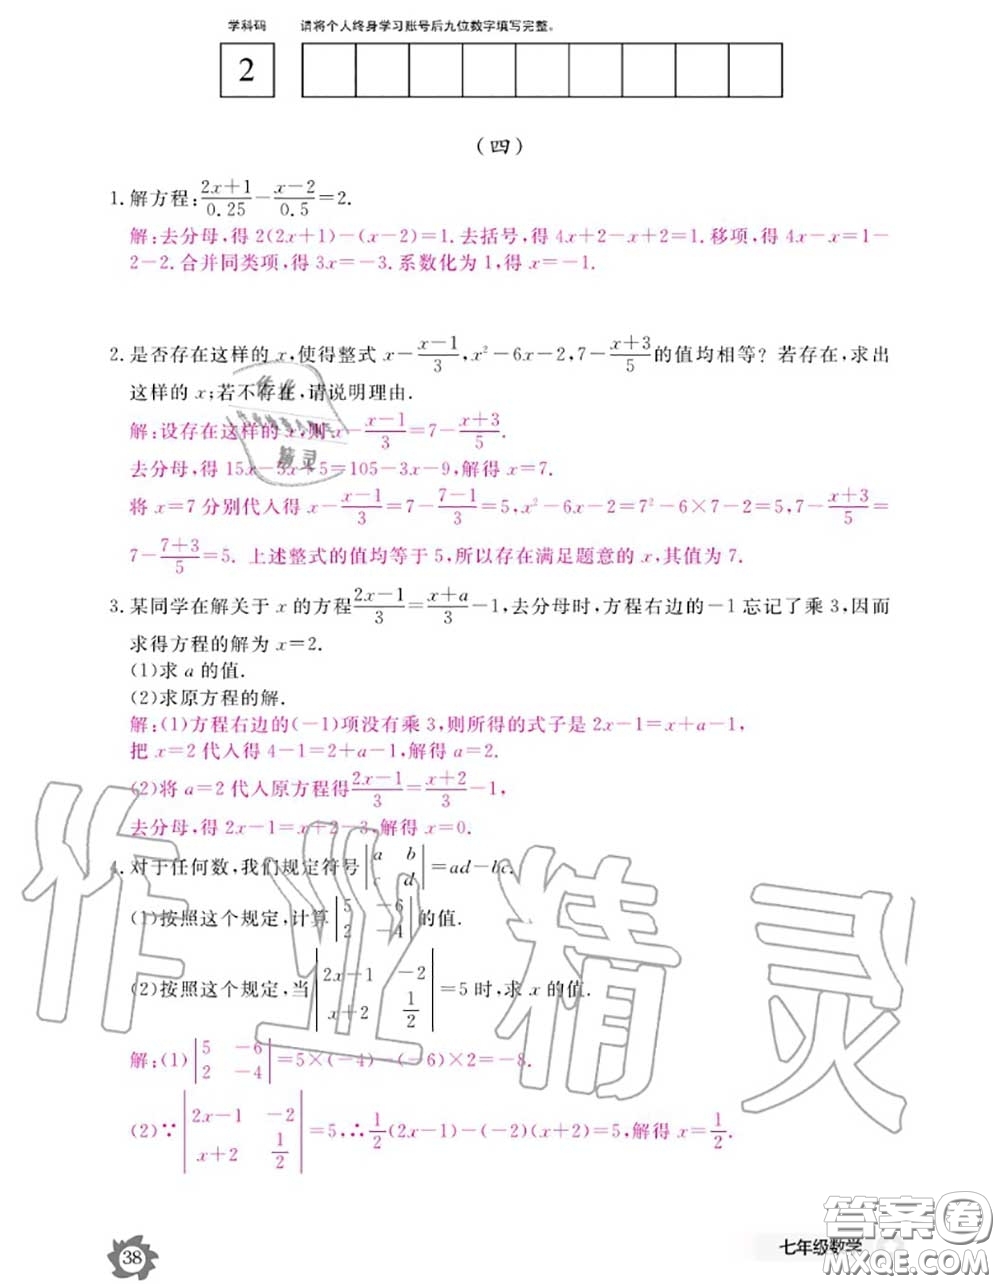 学科码 请将个人终身学习账号后九位数字填写完整。
2
(四)
1. 解方程: (2x+1)/0.25 − (x−2)/0.5 = 2.
解:去分母,得 2(2x+1)−(x−2)=1. 去括号,得 4x+2−x+2=1. 移项,得 4x−x=1−
2−2. 合并同类项,得 3x=−3. 系数化为 1,得 x=−1.
2. 是否存在这样的 x,使得整式 x−(x−1)/3, x²−6x−2, 7−(x+3)/5 的值均相等? 若存在,求出
这样的 x;若不存在,请说明理由.
解:设存在这样的 x,则 x−(x−1)/3=7−(x+3)/5.
去分母,得 15x−5x+5=105−3x−9,解得 x=7.
将 x=7 分别代入得 x−(x−1)/3=7−(7−1)/3=5, x²−6x−2=7²−6×7−2=5, 7−(x+3)/5=
7−(7+3)/5=5. 上述整式的值均等于 5,所以存在满足题意的 x,其值为 7.
3. 某同学在解关于 x 的方程 (2x−1)/3=(x+a)/3−1,去分母时,方程右边的−1 忘记了乘 3,因而
求得方程的解为 x=2.
(1)求 a 的值.
(2)求原方程的解.
解:(1)方程右边的(−1)项没有乘 3,则所得的式子是 2x−1=x+a−1,
把 x=2 代入得 4−1=2+a−1,解得 a=2.
(2)将 a=2 代入原方程得 (2x−1)/3=(x+2)/3−1,
去分母,得 2x−1=x+2−3,解得 x=0.
4. 对于任何数,我们规定符号 |a b; c d|=ad−bc.
(1)按照这个规定,计算 |5 −6; 2 −4| 的值.
(2)按照这个规定,当 |2x−1 −2; x+2 1/2|=5 时,求 x 的值.
解:(1) |5 −6; 2 −4|=5×(−4)−(−6)×2=−8.
(2)∵ |2x−1 −2; x+2 1/2|=5,∴ 1/2(2x−1)−(−2)(x+2)=5,解得 x=1/2.
作业精灵
38
七年级数学
答案圈
MXQE.COM